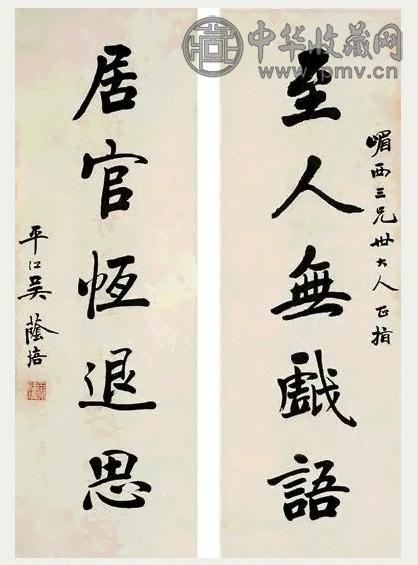 中华收藏网
www.pmv.cn
嵋西三兄世大人正指
至人無戲語
居官恆退思
平江吳蔭培